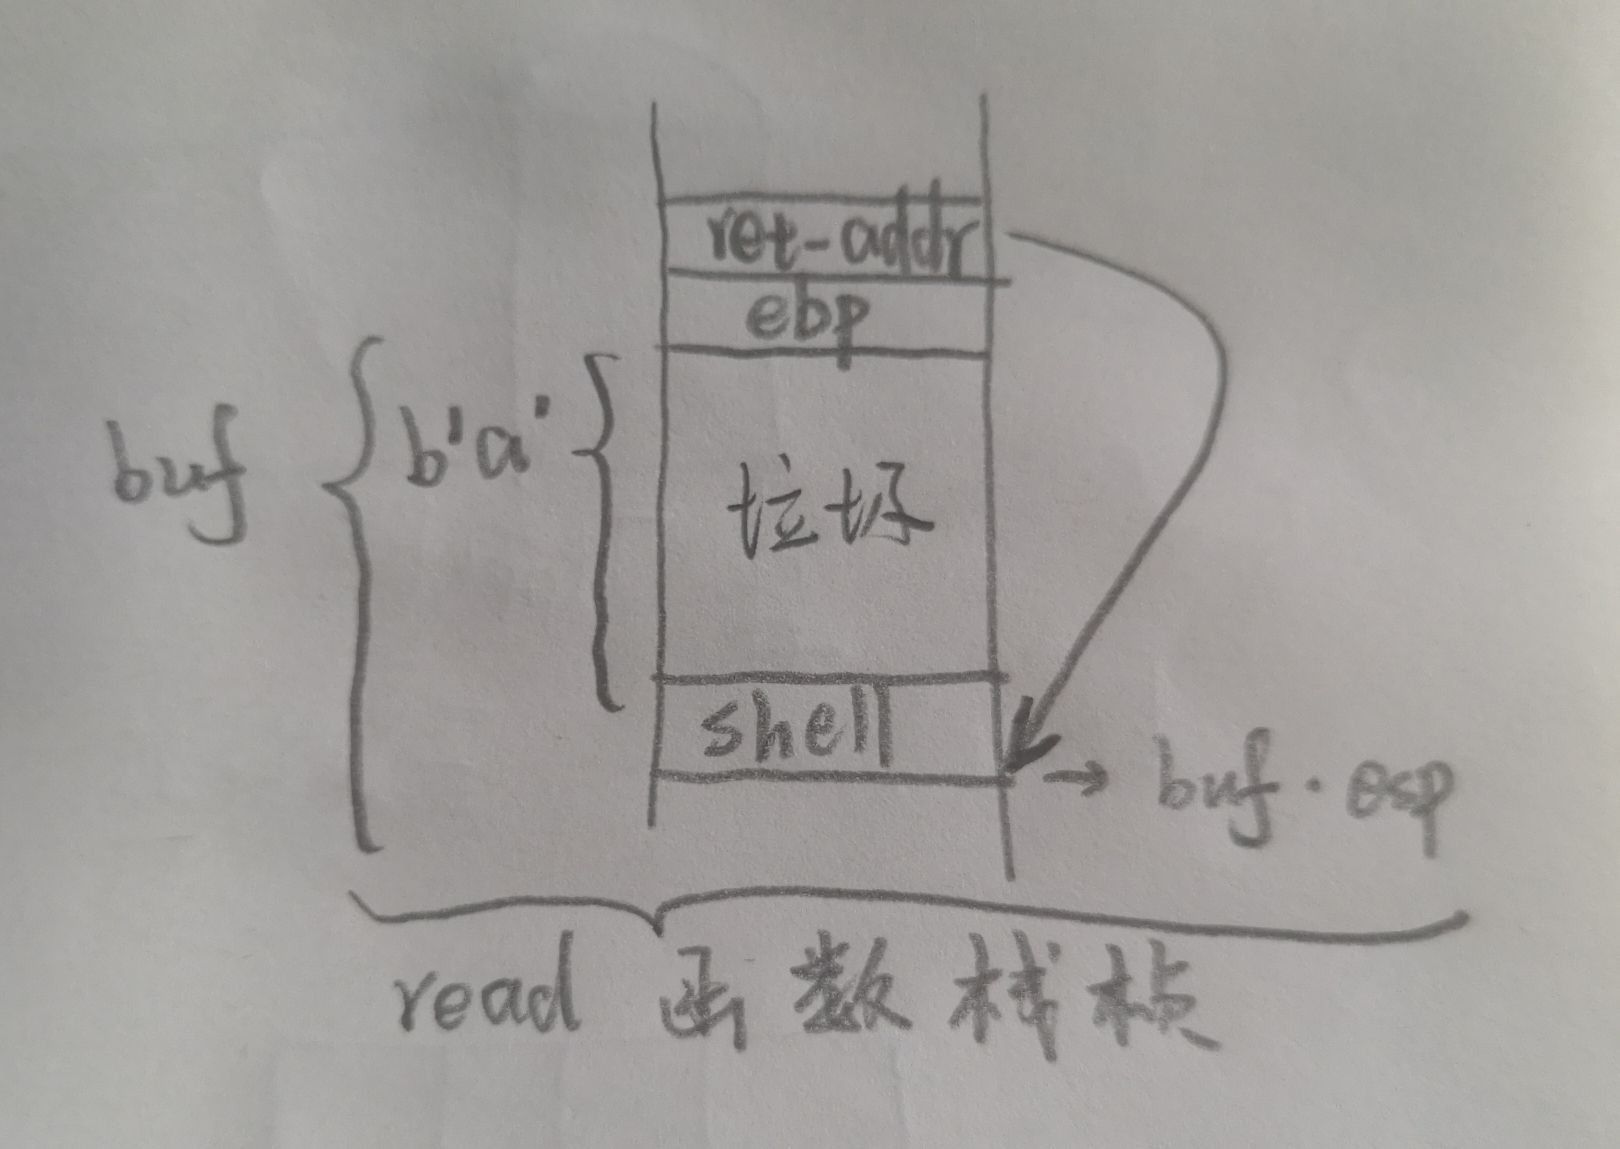 ret-addr
ebp
buf
b'a'
垃圾
shell
→ buf . esp
read 函数栈桢